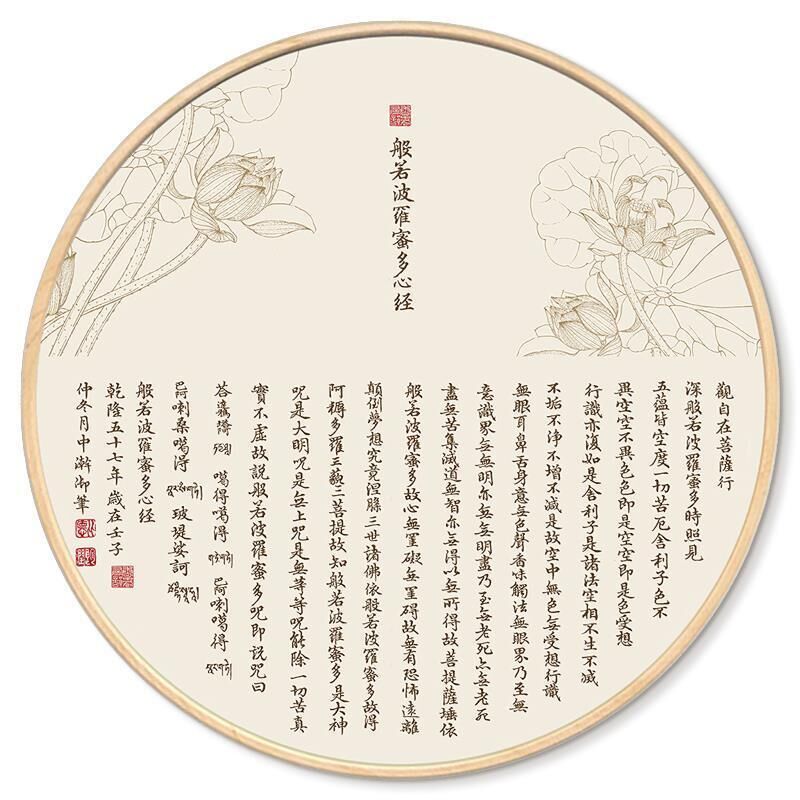 般若波羅蜜多心経
觀自在菩薩行
深般若波羅蜜多時照見
五蕴皆空度一切苦厄舍利子色不
異空空不異色色即是空空即是色受想
行識亦復如是舍利子是諸法空相不生不减
不垢不淨不增不减是故空中無色無受想行識
無眼耳鼻舌身意無色聲香味觸法無眼界乃至無
意識界無無明亦無無明盡乃至無老死亦無老死
盡無苦集滅道無智亦無得以無所得故菩提薩埵依
般若波羅蜜多故心無罣礙無罣碍故無有恐怖遠離
顛倒夢想究竟涅槃三世諸佛依般若波羅蜜多故得
阿耨多羅三藐三菩提故知般若波羅蜜多是大神
咒是大明咒是無上咒是無等等咒能除一切苦真
實不虚故説般若波羅蜜多咒即説咒曰
噶得噶得 巴喇噶得
巴喇桑噶得 玻堤娑訶
般若波羅蜜多心経
乾隆五十七年歲在壬子
仲冬月中澣御筆